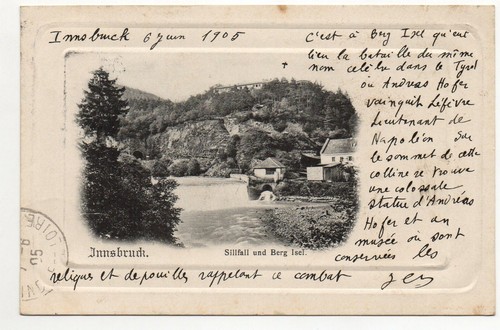 Innsbruck 6 juin 1905
C'est à Berg Isel qu'eut
lieu la bataille du même
nom célèbre dans le Tyrol
où Andréas Hofer
vainquit Lefèvre
Lieutenant de
Napoléon Sur
le sommet de cette
colline se trouve
une colossale
statue d'Andréas
Hofer et un
musée où sont
conservées les
reliques et dépouilles rappelant ce combat
Innsbruck.
Sillfall und Berg Isel.
LOIRE
05